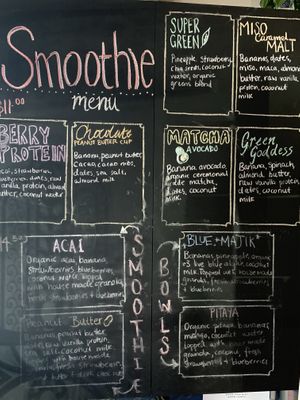 Smoothie
menu
$11.00
SUPER
GREEN
Pineapple, strawberry,
chia seeds, coconut
water, organic
greens blend
MISO
Caramel
MALT
Bananas, dates,
miso, maca, almond
butter, raw vanilla
protein, coconut
milk
BERRY
PROTEIN
Acai, strawberries,
dates, raw
vanilla protein, almond
butter, coconut water
Chocolate
PEANUT BUTTER CUP
Banana, peanut butter,
cacao, cacao nibs,
dates, sea salt,
almond milk
MATCHA
AVOCADO
Banana, avocado,
organic ceremonial
grade matcha,
dates, coconut
milk
Green
Goddess
Banana, spinach,
almond butter,
raw vanilla protein,
dates, coconut
milk
SMOOTHIE
BOWLS
ACAI
Organic acai, banana,
strawberries, blueberries,
coconut milk topped
with house made granola,
fresh strawberries + blueberries
BLUE + MAJIK
Bananas, pineapple, organic
blue algae, coconut
milk. Topped with house made
granola, fresh strawberries
+ blueberries
Peanut Butter
Bananas, peanut butter,
raw vanilla protein,
sea salt, coconut milk
with house made
fresh strawberries
PITAYA
Organic pitaya, bananas,
mango, coconut water
topped with house made
granola, coconut, fresh
strawberries + blueberries